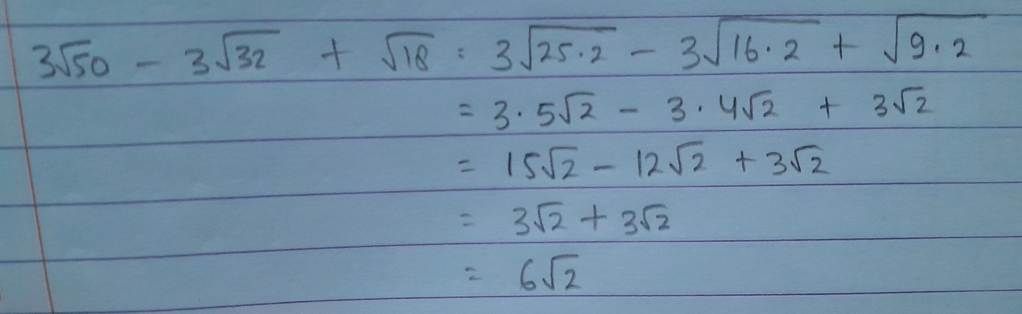 3√50 - 3√32 + √18 = 3√25·2 - 3√16·2 + √9·2
= 3·5√2 - 3·4√2 + 3√2
= 15√2 - 12√2 + 3√2
= 3√2 + 3√2
= 6√2